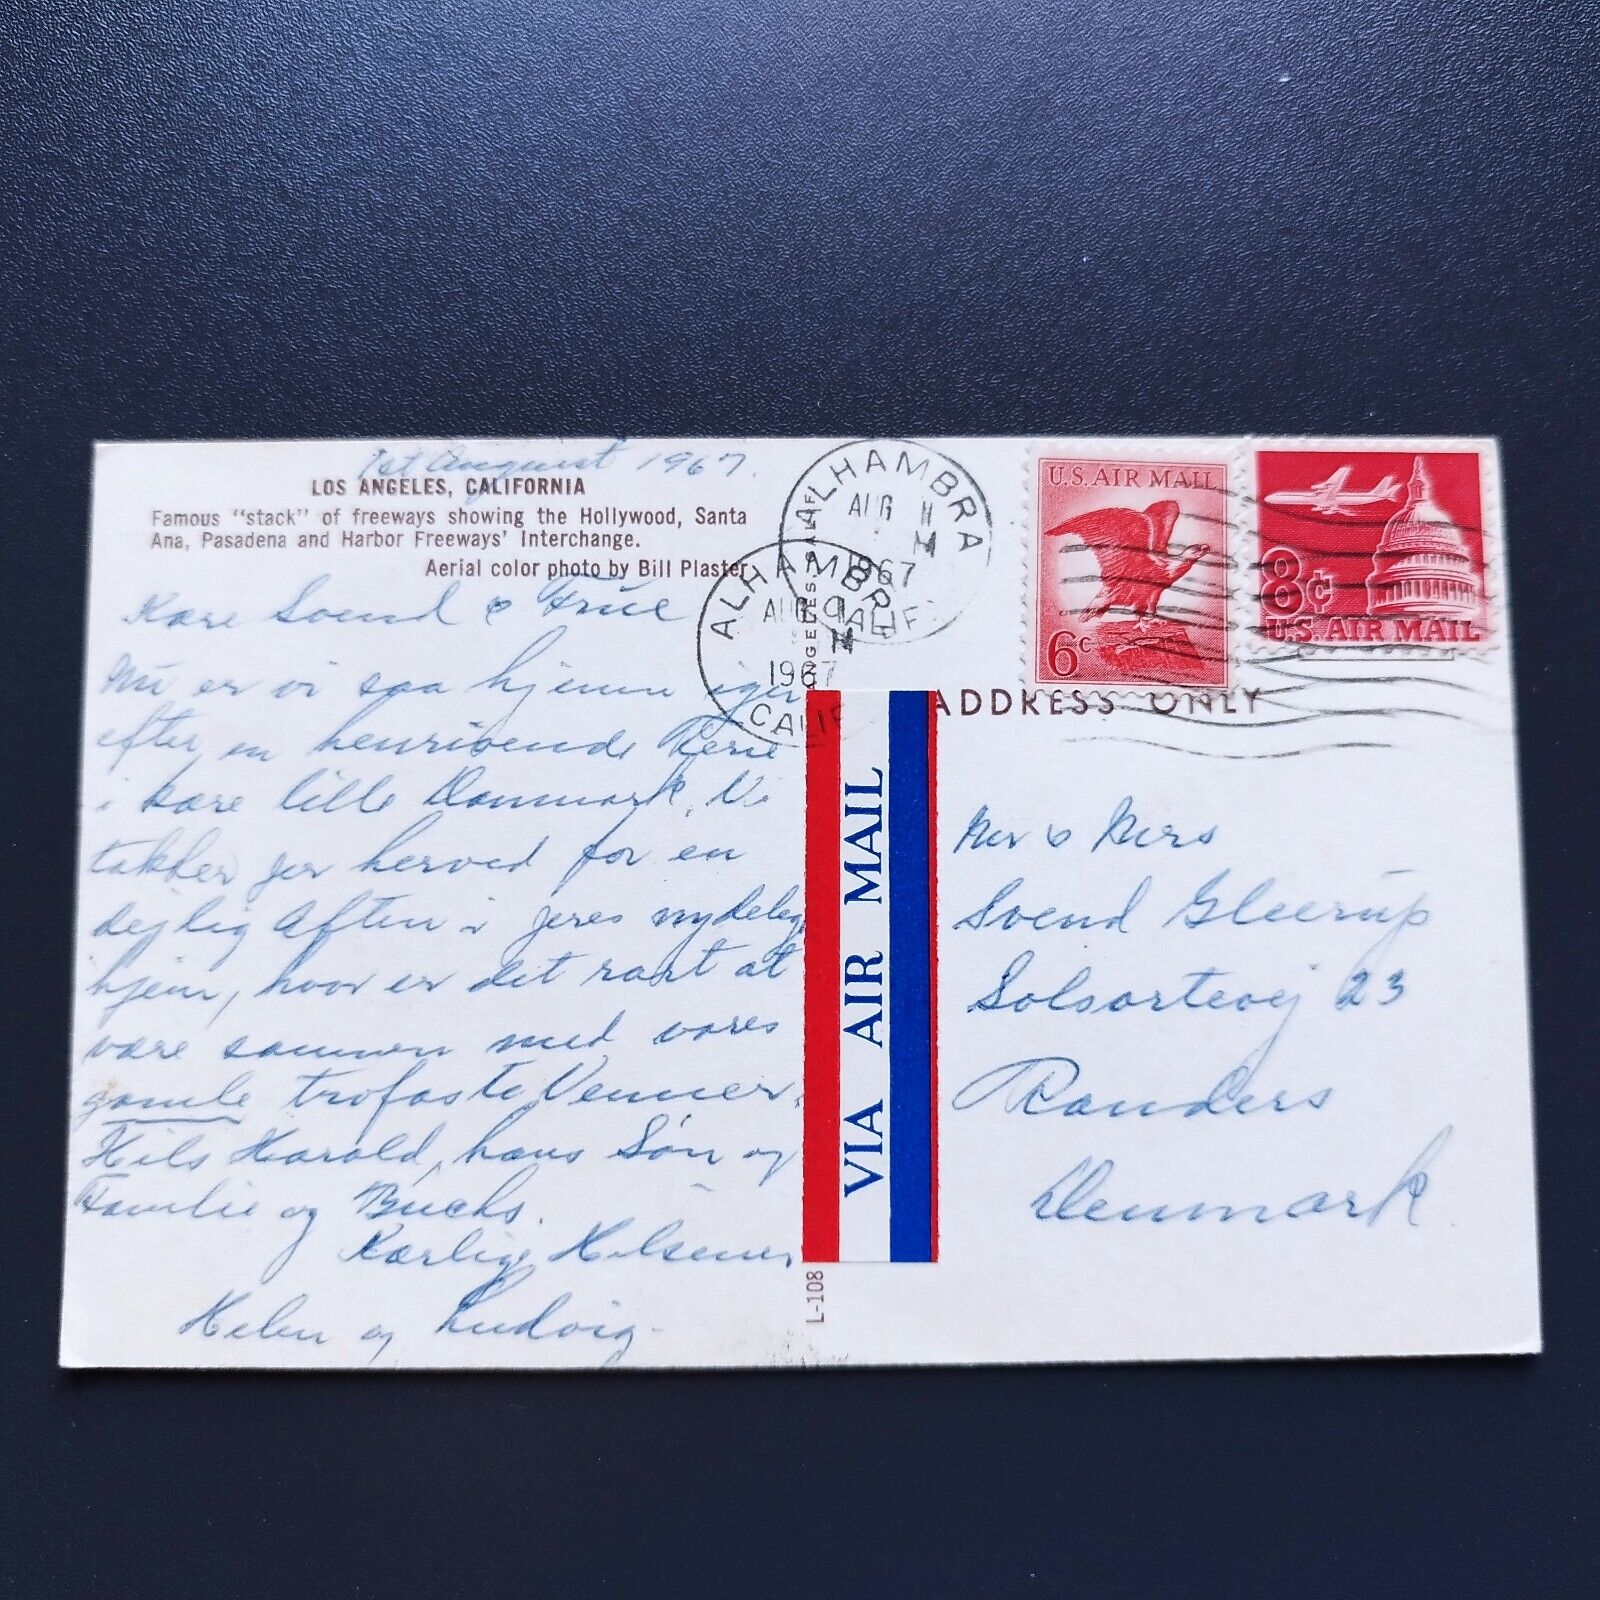 1st August 1967.
LOS ANGELES, CALIFORNIA
Famous "stack" of freeways showing the Hollywood, Santa
Ana, Pasadena and Harbor Freeways' Interchange.
Aerial color photo by Bill Plaster
Kære Svend & Frue
Nu er vi saa hjemme igen
efter en henrivende Ferie
i kære lille Danmark. Vi
takker jer herved for en
dejlig Aften i jeres nydelig
hjem, hvor er det rart at
være sammen med vores
gamle trofaste Venner.
Hils Harald, hans Søn og
Familie og Buchs.
Kærlige Hilsener
Helen og Ludvig
ALHAMBRA
AUG 1
1967
CALIF
ALHAMBRA
AUG 1
1967
CALIF
U.S. AIR MAIL
6c
8¢
U.S. AIR MAIL
ADDRESS ONLY
VIA AIR MAIL
L-108
Mr & Mrs
Svend Gleerup
Solsortevej 23
Randers
Denmark